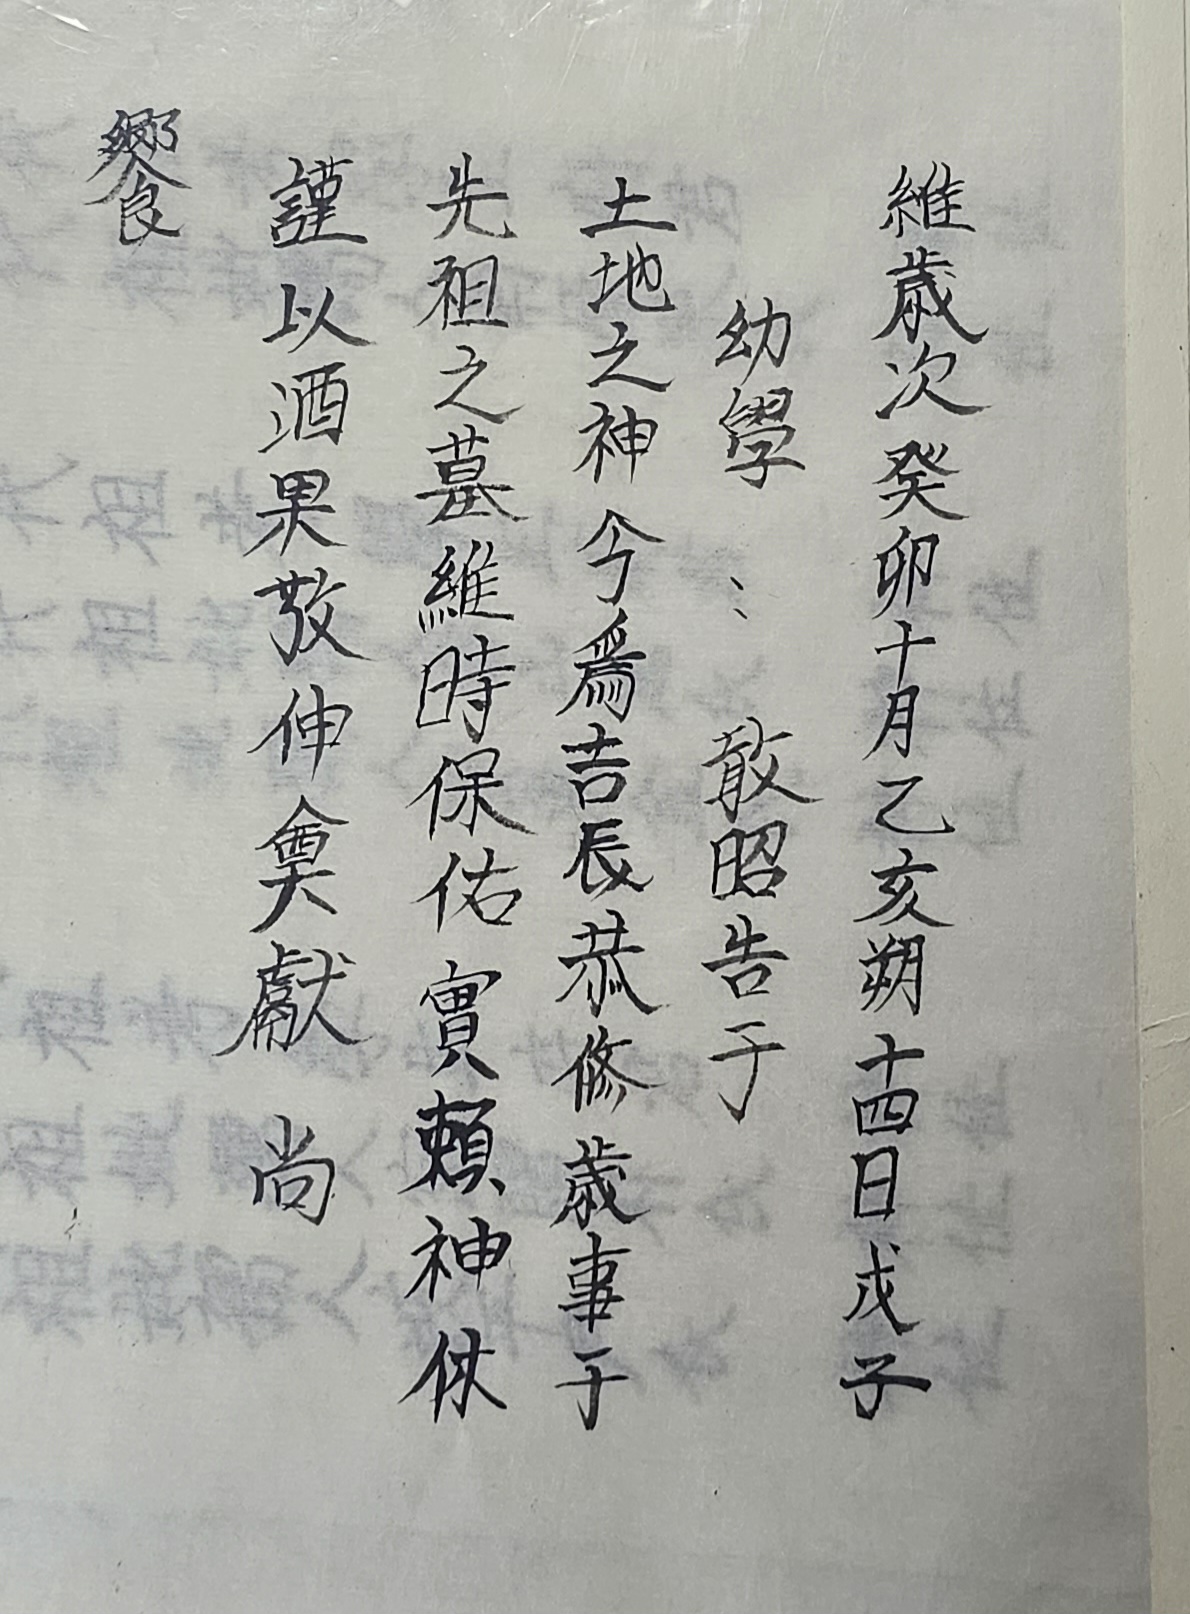 維歲次癸卯十月乙亥朔十四日戊子
幼學 : 敢昭告于
土地之神 今爲吉辰恭修歲事于
先祖之墓維時保佑實賴神休
謹以酒果敬伸奠獻 尚
饗